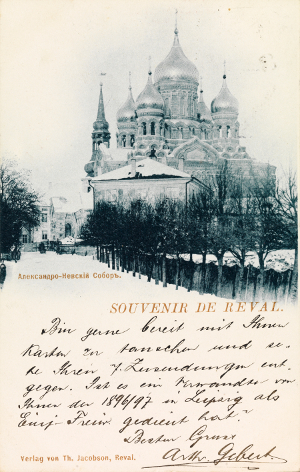 Александро-Невскій Соборъ.
SOUVENIR DE REVAL.
Bin gerne bereit mit Ihnen
Karten zu tauschen und se-
he Ihren Zusendungen ent-
gegen. Ist es ein Verwandter von
Ihnen der 1896/97 in Leipzig als
Einj. Freiw. gedient hat?
Besten Gruss
Arth. Gebert
Verlag von Th. Jacobson, Reval.